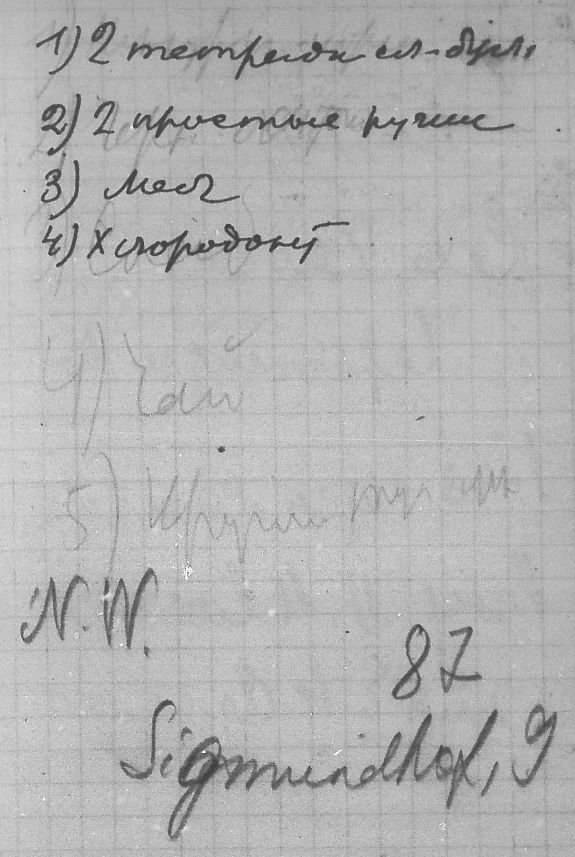 1) 2 тетради сл-бум.
2) 2 простые ручки
3) Мел
4) Хлородонт
4) Чай
5)
N.W.
87
Sigmundhof, 9